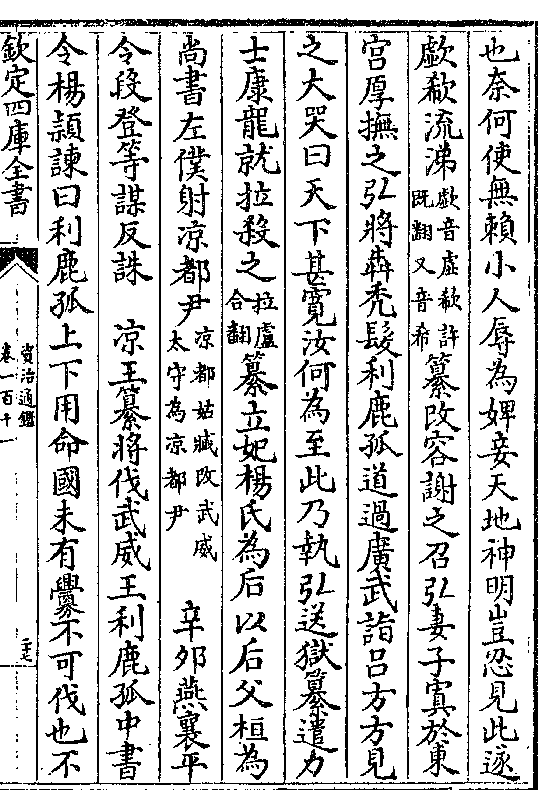 也奈何使無賴小人辱為婢妾天地神明豈忍見此遂
歔欷流涕歔音虛欷許既翻又音希纂改容謝之召弘妻子寘於東
宮厚撫之弘將奔禿髮利鹿孤道過廣武詣呂方方見
之大哭曰天下甚寛汝何為至此乃執弘送獄纂遣力
士康龍就拉殺之拉盧合翻纂立妃楊氏為后以后父桓為
尚書左僕射凉都尹凉都姑臧改武威太守為凉都尹 辛夘燕襄平
令段登等謀反誅 凉王纂將伐武威王利鹿孤中書
令楊頴諫曰利鹿孤上下用命國未有釁不可伐也不
欽定四庫全書
資治通鑑
卷一百十一
二十七